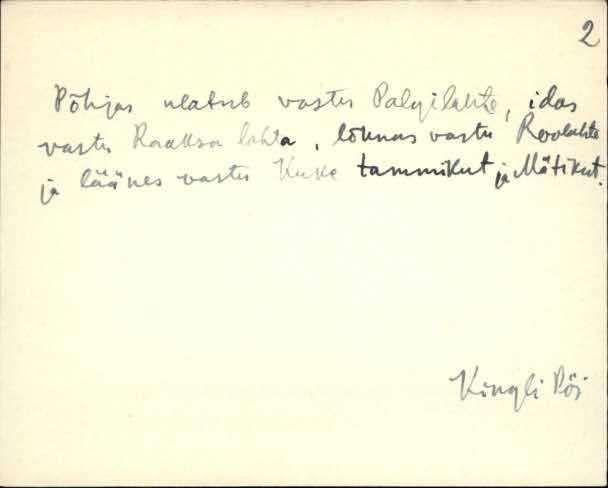 2
Põhjas ulatub vastu Palgilahte, idas
vastu Raaksa lahta, lõunas vastu Roolahte
ja läänes vastu Kuke tammikut ja Mätikut.
Kingli Põi